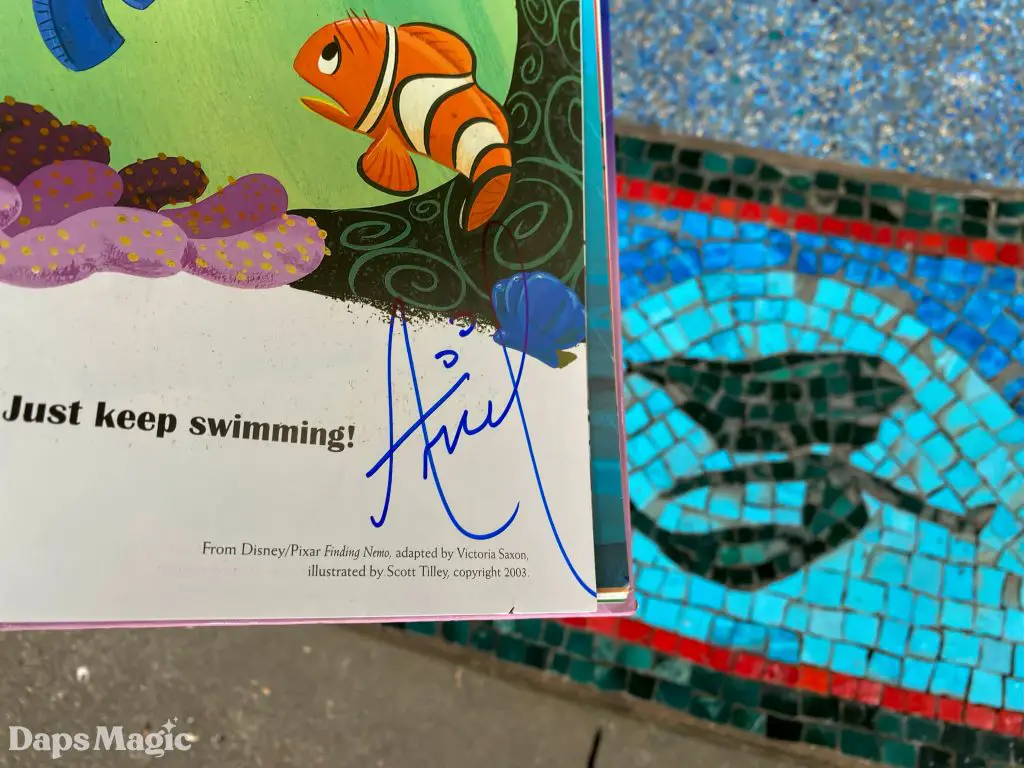 Just keep swimming!
From Disney/Pixar Finding Nemo, adapted by Victoria Saxon,
illustrated by Scott Tilley, copyright 2003.
Daps Magic